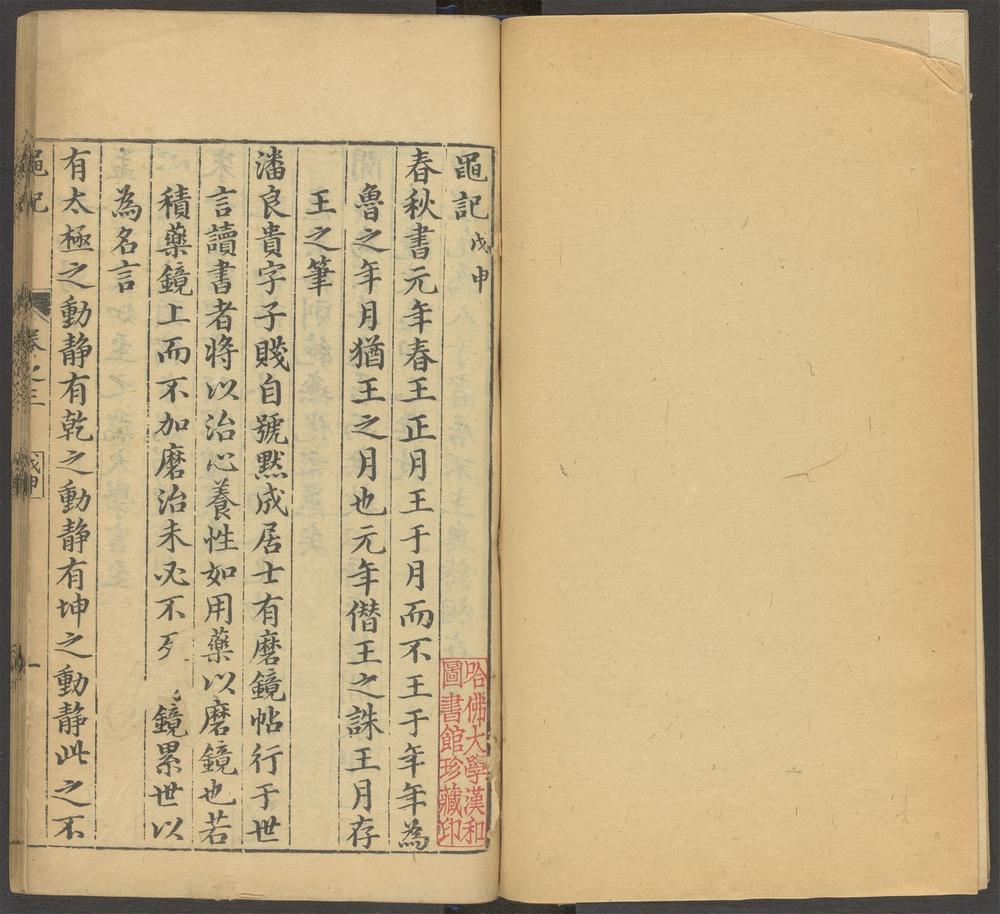 黽記戊申
春秋書元年春王正月王于月而不王于年年為
魯之年月猶王之月也元年僭王之誅王月存
王之筆
潘良貴字子賤自號默成居士有磨鏡帖行于世
言讀書者將以治心養性如用藥以磨鏡也若
積藥鏡上而不加磨治未必不 鏡累世以
為名言
有太極之動靜有乾之動靜有坤之動靜此之不
黽記
卷之三
戊申
一
哈佛大學漢和
圖書館珍藏印